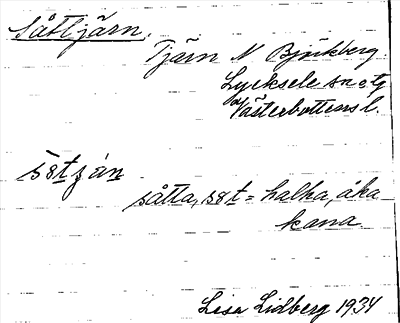 Såttjärn.
Tjärn N Björkberg.
Lycksele sn o tg
Västerbottens l.
sȣtján
såtta, sȣt = halka, åka
kana.
Lisa Lidberg 1934